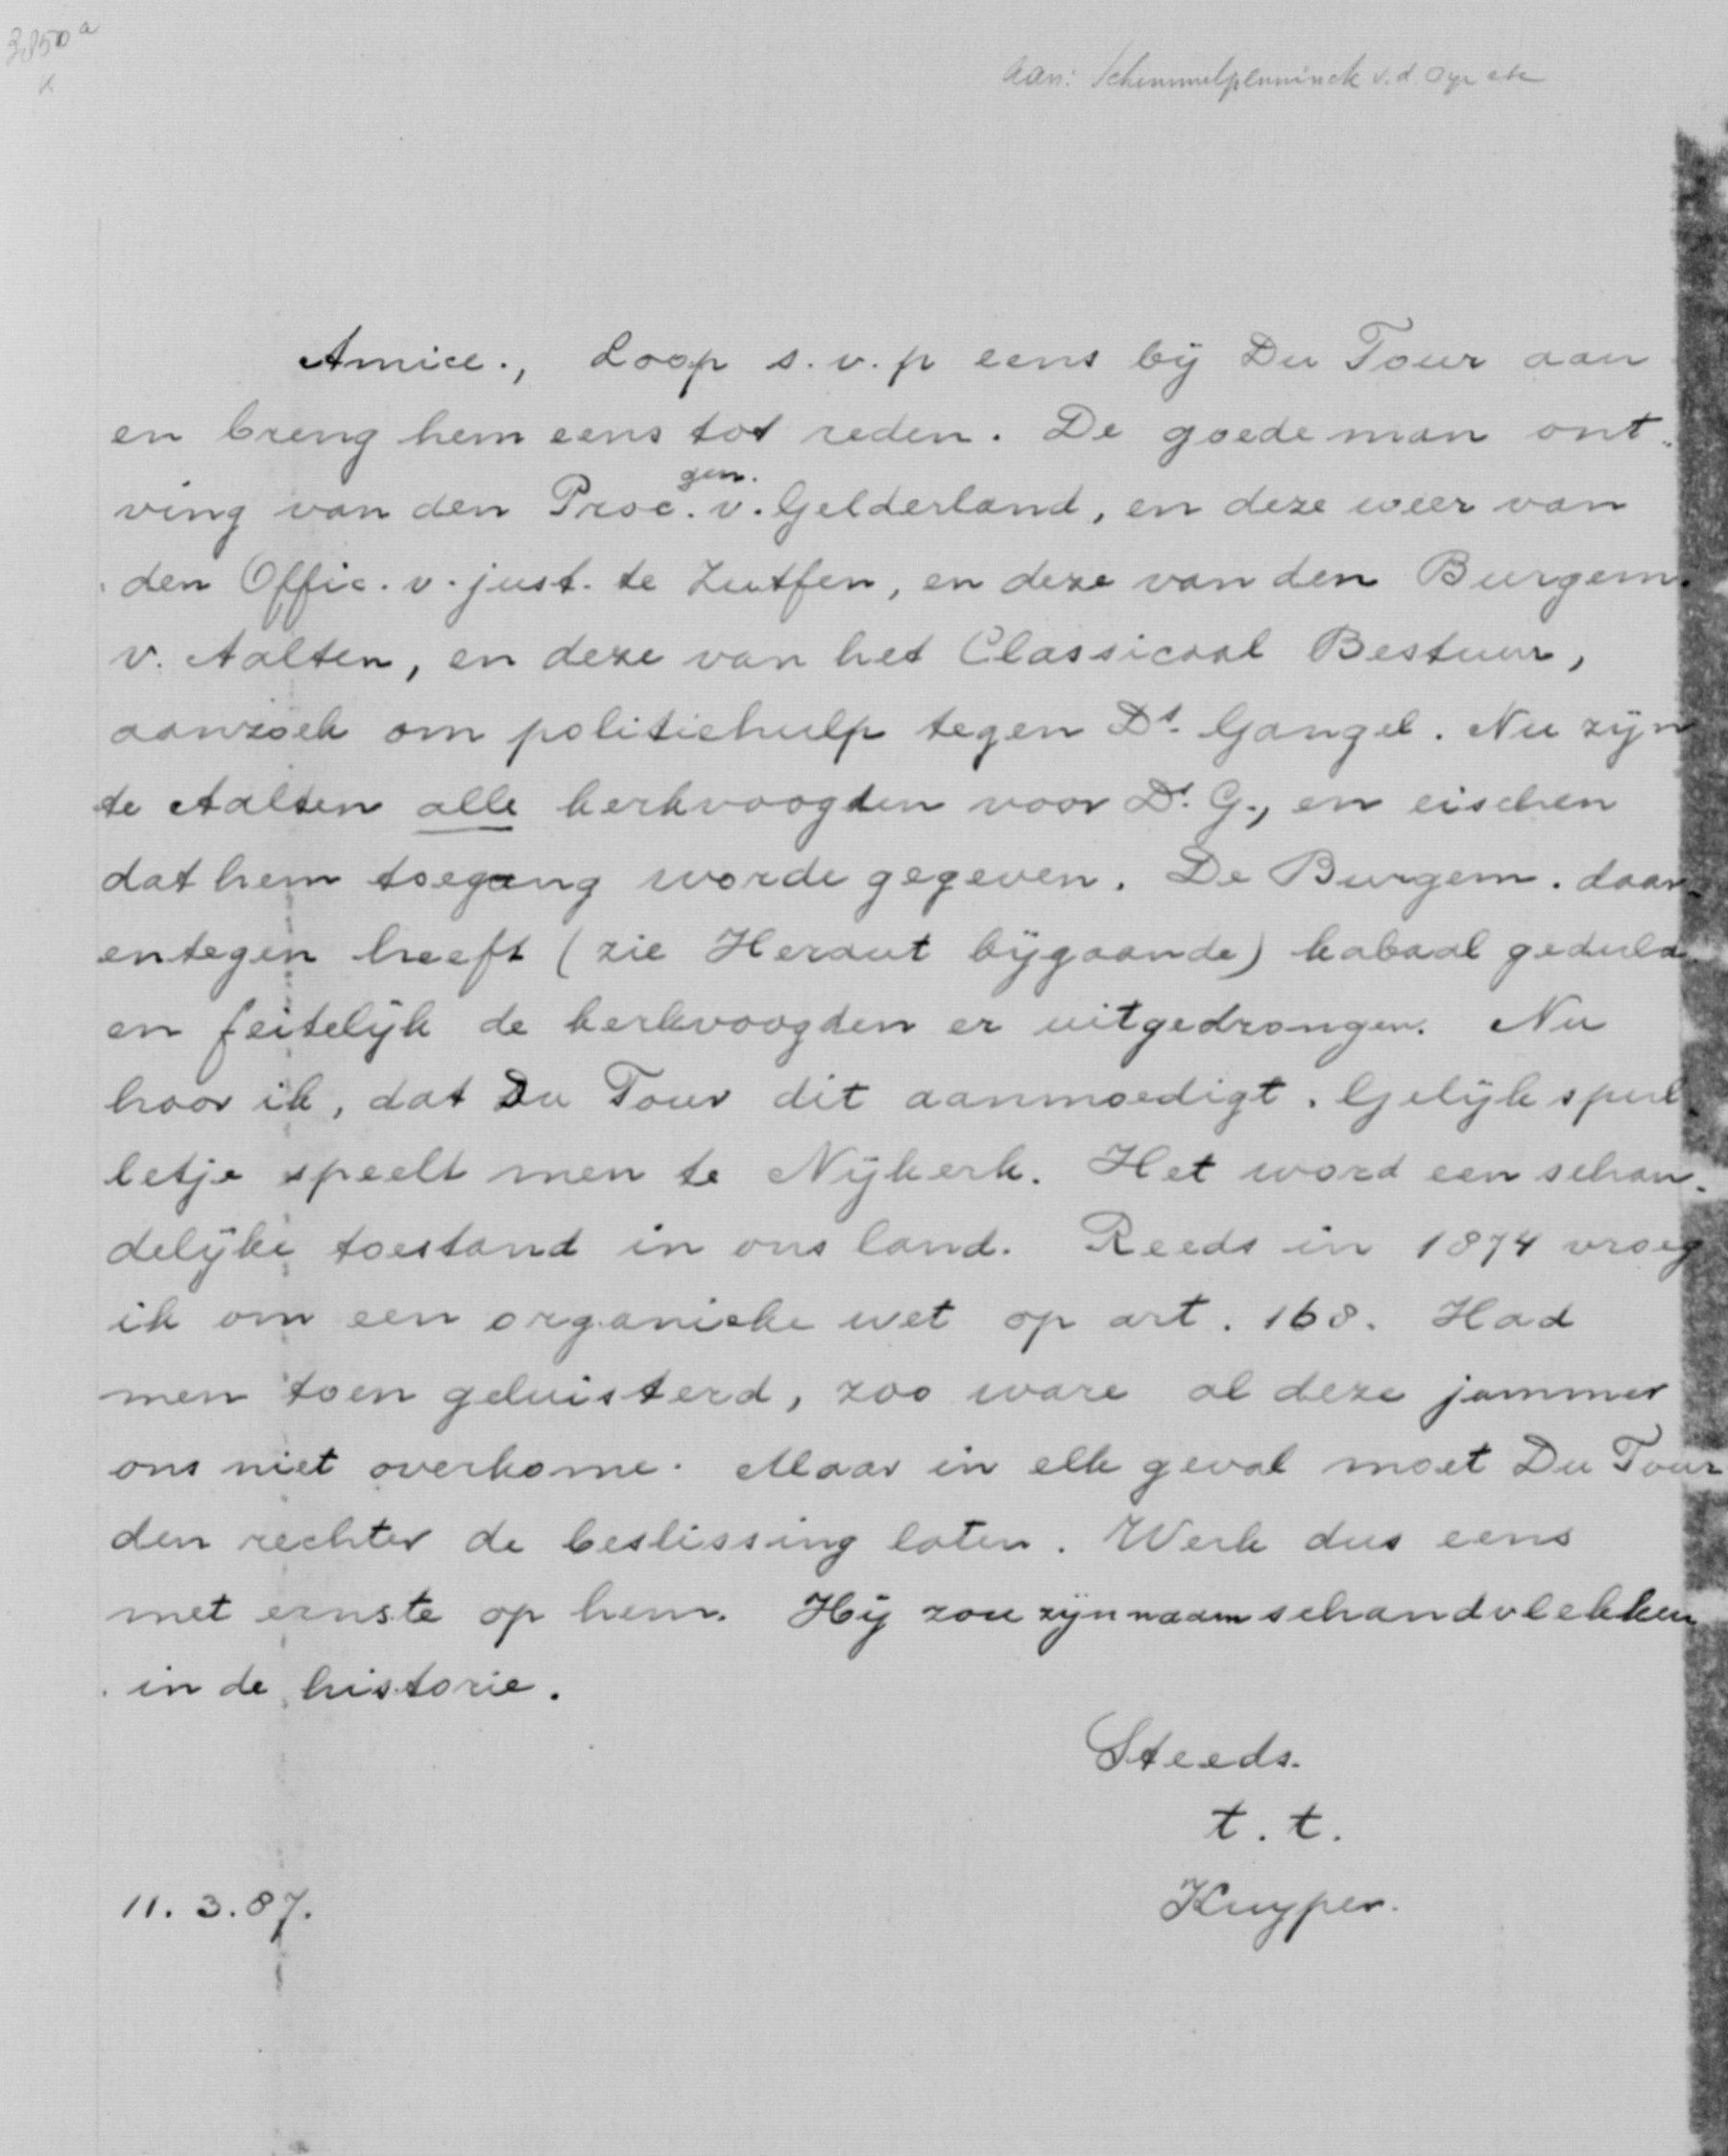 3850 a
x
Aan: Schimmelpenninck v.d. Oye etc
Amice., Loop s.v.p eens bij Du Tour aan
en breng hem eens tot reden. De goede man ont-
gen.
ving van den Proc. v. Gelderland, en deze weer van
den Offic. v. just. te Zutfen, en deze van den Burgem.
v. Aalten, en deze van het Classicaal Bestuur,
aanzoek om politiehulp tegen Ds. Gangel. Nu zijn
te Aalten alle kerkvoogden voor Ds. G., en eischen
dat hem toegang worde gegeven. De Burgem. daar-
entegen heeft (zie Heraut bijgaande) kabaal geduld
en feitelijk de kerkvoogden er uitgedrongen. Nu
hoor ik, dat Du Tour dit aanmoedigt. Gelijk spul-
letje speelt men te Nijkerk. Het word een schan-
delijke toestand in ons land. Reeds in 1874 vroeg
ik om een organieke wet op art. 168. Had
men toen geluisterd, zoo ware al deze jammer
ons niet overkome. Maar in elk geval moet Du Tour
den rechter de beslissing laten. Werk dus eens
met ernste op hem. Hij zou zijn naam schandvlekken
in de historie.
Steeds.
t. t.
Kuyper.
11. 3. 87.